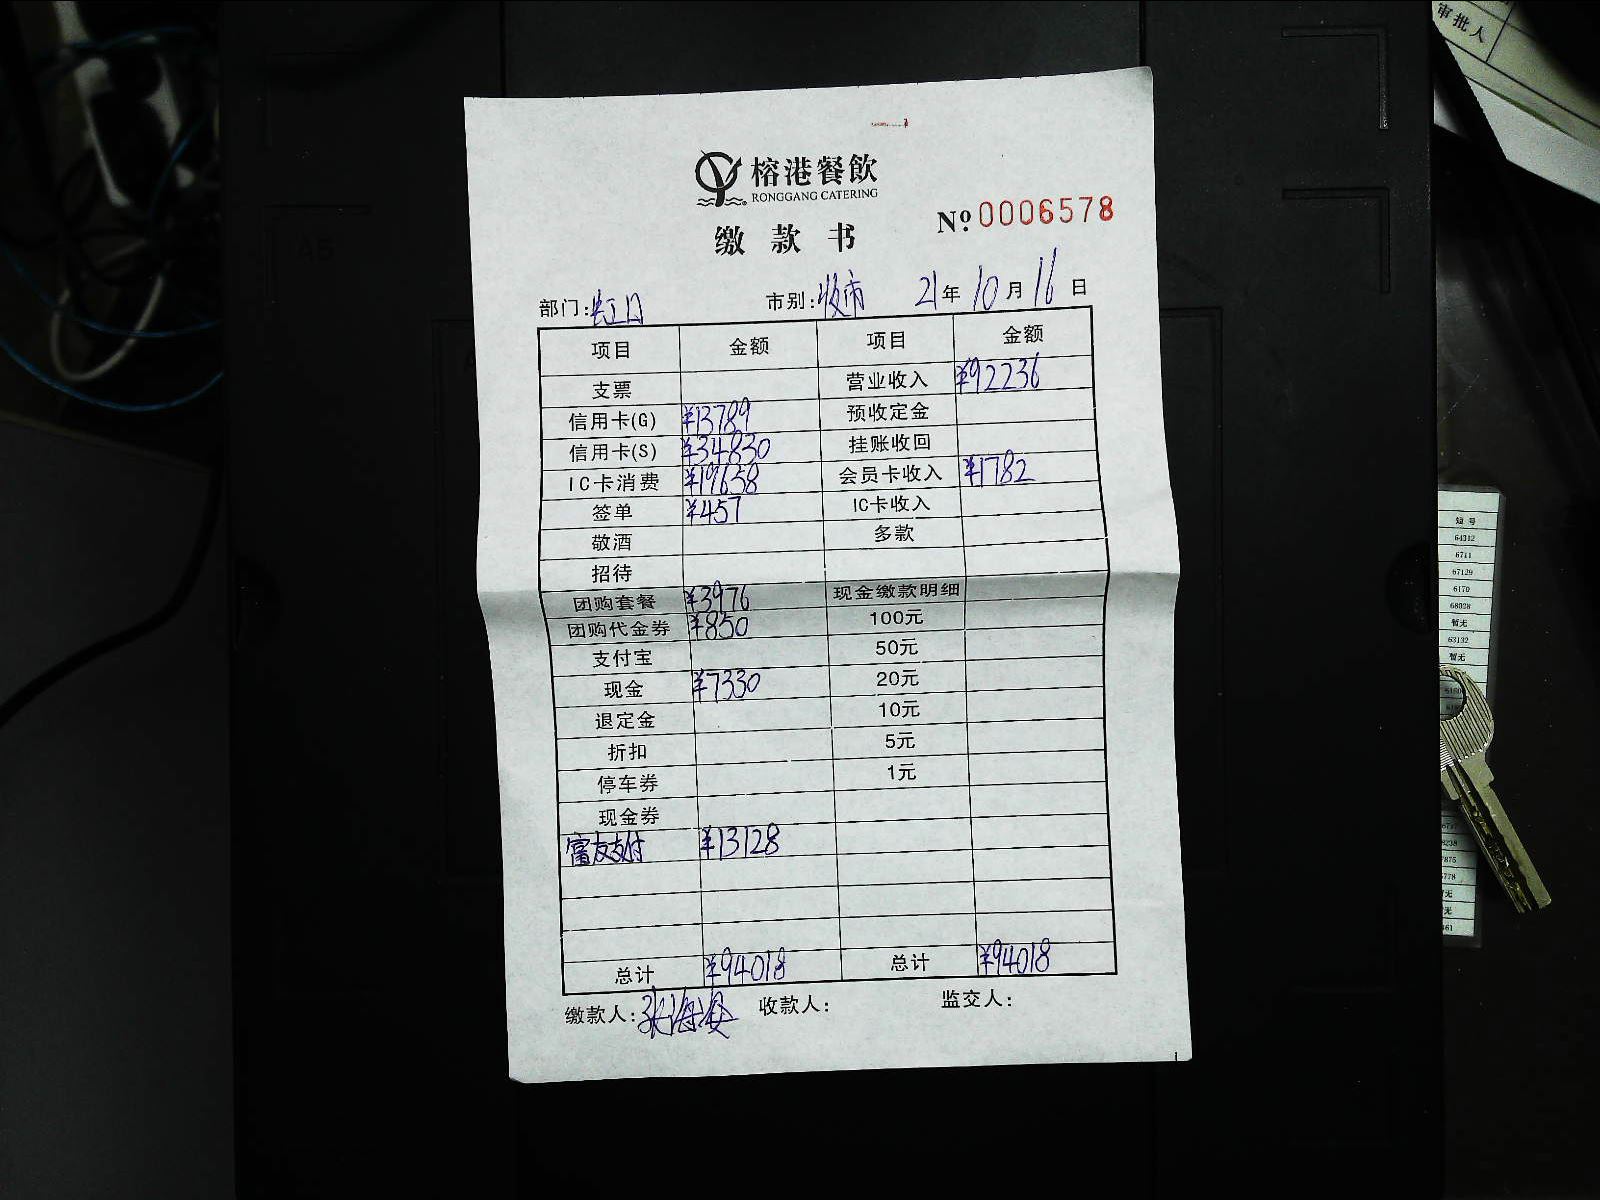 审批人
榕港餐飲
RONGGANG CATERING
№ 0006578
缴款书
部门:虹口 市别:收市 21年10月16日
项目 金额 项目 金额
支票 营业收入 ¥92236
信用卡(G) ¥13789 预收定金
信用卡(S) ¥34830 挂账收回
IC卡消费 ¥19658 会员卡收入 ¥1782
签单 ¥457 IC卡收入
敬酒 多款
招待
团购套餐 ¥3976 现金缴款明细
团购代金券 ¥850 100元
支付宝 50元
现金 ¥7330 20元
退定金 10元
折扣 5元
停车券 1元
现金券
富友支付 ¥13128
总计 ¥94018 总计 ¥94018
缴款人: 收款人: 监交人:
短号
64312
6711
67129
6170
68028
暂无
63132
暂无